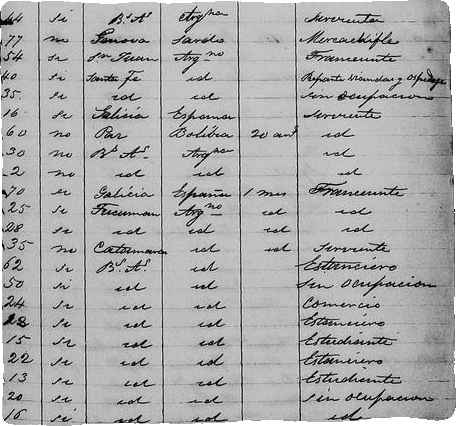 44 si Bs As Argna Sirvienta
77 no Genova Sardo Mercachifle
54 si Sn Juan Argno Transeunte
40 si Santa Fe id
35 si id id Sin Ocupacion
16 si Galicia Española Sirviente
60 no Paz Bolibia 20 ans id
30 no Bs As Argna id
2 no id id id
70 si Galicia España 1 mes Transeunte
25 si Tucuman Argno id id
28 si id id id id
35 no Catamarca id id Sirviente
62 si Bs As id Estanciero
50 si id id Sin Ocupacion
24 si id id Comercio
28 si id id Estanciero
15 si id id Estudiante
22 si id id Estanciero
13 si id id Estudiante
20 si id id Sin Ocupacion
16 si id id id